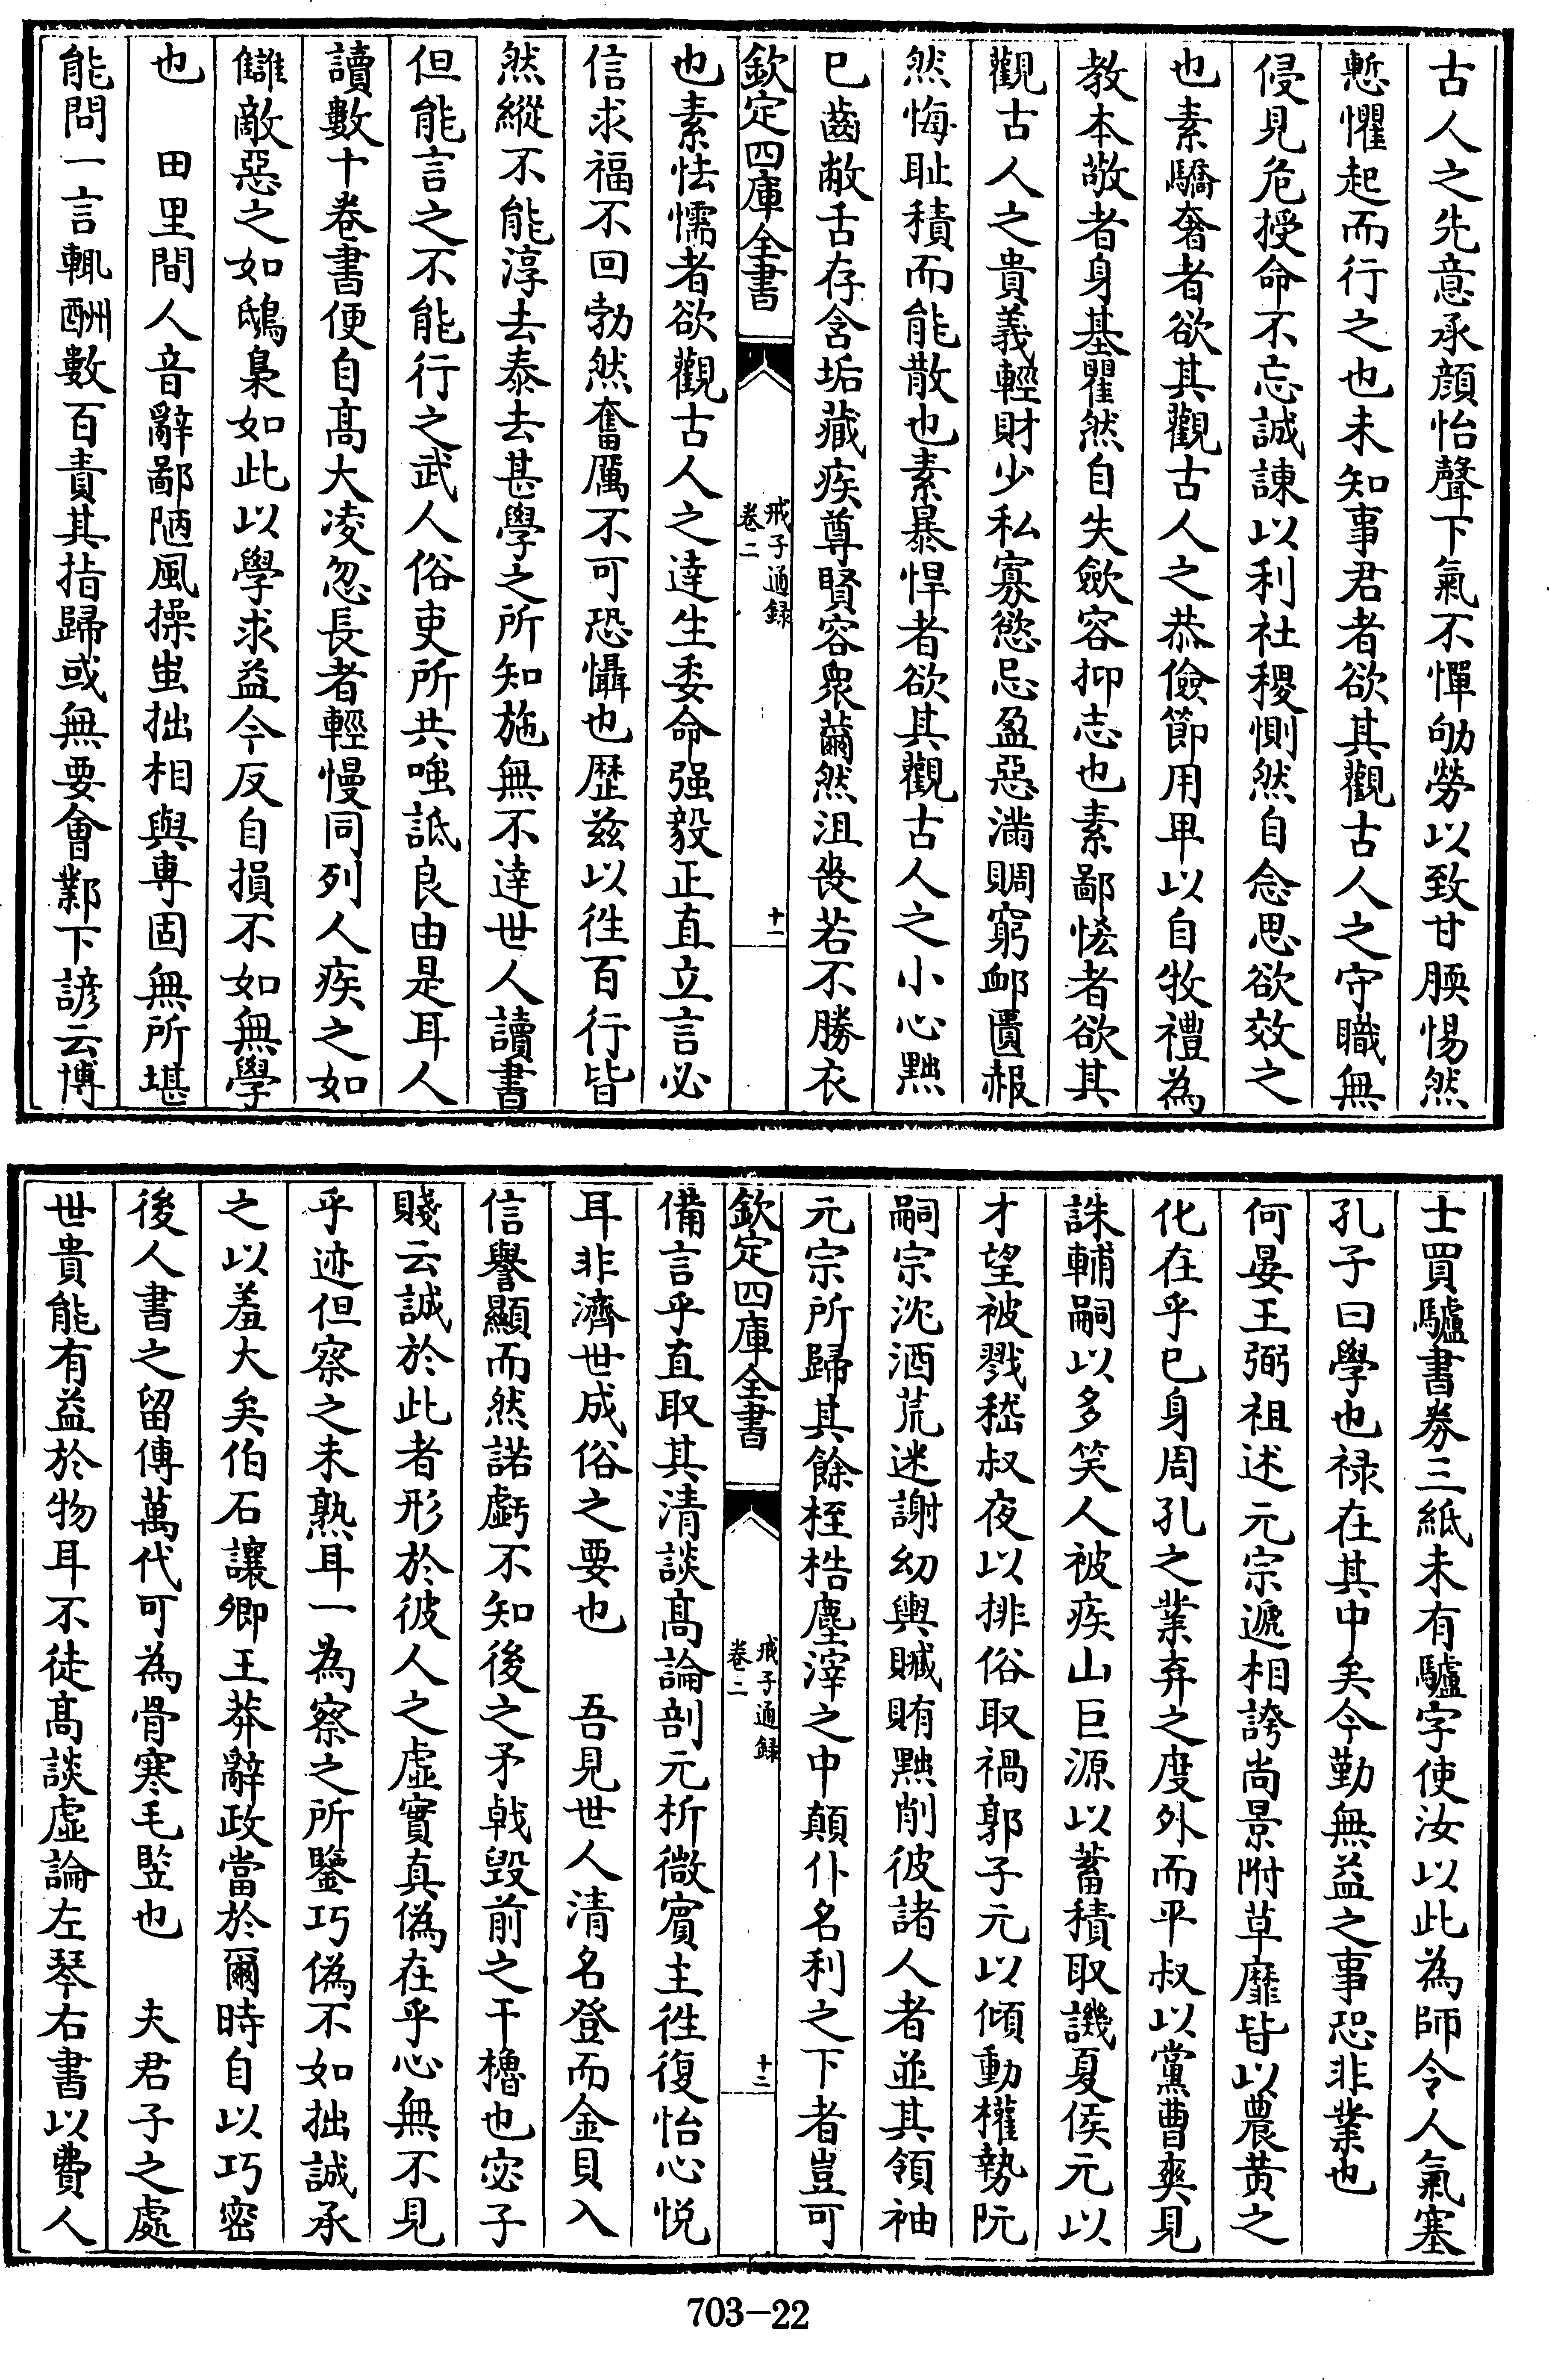 古人之先意承顔怡聲下氣不憚劬勞以致甘腝惕然
慙懼起而行之也未知事君者欲其觀古人之守職無
侵見危授命不忘誠諌以利社稷惻然自念思欲效之
也素驕奢者欲其觀古人之恭儉節用卑以自牧禮為
教本敬者身基瞿然自失歛容抑志也素鄙悋者欲其
觀古人之貴義輕財少私寡慾忌盈惡滿賙窮卹匱赧
然悔耻積而能散也素暴悍者欲其觀古人之小心黜
已齒敝舌存含垢藏疾尊賢容衆薾然沮喪若不勝衣
欽定四庫全書
戒子通録
卷二
十一
也素怯懦者欲觀古人之達生委命强毅正直立言必
信求福不回勃然奮厲不可恐懾也歴兹以徃百行皆
然縱不能淳去泰去甚學之所知施無不達世人讀書
但能言之不能行之武人俗吏所共嗤詆良由是耳人
讀數十巻書便自髙大凌忽長者輕慢同列人疾之如
讎敵惡之如鴟梟如此以學求益今反自損不如無學
也　田里間人音辭鄙陋風操蚩拙相與專固無所堪
能問一言輒酬數百責其指歸或無要會鄴下諺云博
士買驢書劵三紙未有驢字使汝以此為師令人氣塞
孔子曰學也禄在其中矣今勤無益之事恐非業也
何晏王弼祖述元宗遞相誇尚景附草靡皆以農黄之
化在乎已身周孔之業弃之度外而平叔以黨曹爽見
誅輔嗣以多笑人被疾山巨源以蓄積取譏夏侯元以
才望被戮嵇叔夜以排俗取禍郭子元以傾動權勢阮
嗣宗沈酒荒迷謝幼輿贓賄黜削彼諸人者並其領袖
元宗所歸其餘桎梏塵滓之中顛仆名利之下者豈可
欽定四庫全書
戒子通録
卷二
十二
備言乎直取其清談髙論剖元析微賔主徃復怡心悦
耳非濟世成俗之要也　吾見世人清名登而金貝入
信譽顯而然諾虧不知後之矛戟毁前之干櫓也宓子
賤云誠於此者形於彼人之虚實真偽在乎心無不見
乎迹但察之未熟耳一為察之所鑒巧偽不如拙誠承
之以羞大矣伯石讓卿王莽辭政當於爾時自以巧密
後人書之留傳萬代可為骨寒毛竪也　夫君子之處
世貴能有益於物耳不徒髙談虚論左琴右書以費人
703-22